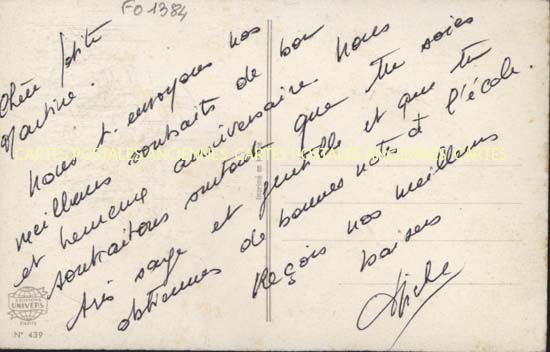 FO 1384
Chère petite
Martine.
Nous t'envoyons nos
meilleurs souhaits de bon
et heureux anniversaire. Nous
souhaitons surtout que tu sois
très sage et gentille et que tu
obtiennes de bonnes notes à l'école.
Reçois nos meilleurs
baisers
CARTES POSTALES ANCIENNES CARTES POSTALES ANCIENNES CARTES
EDITIONS
UNIVERS
N° 439